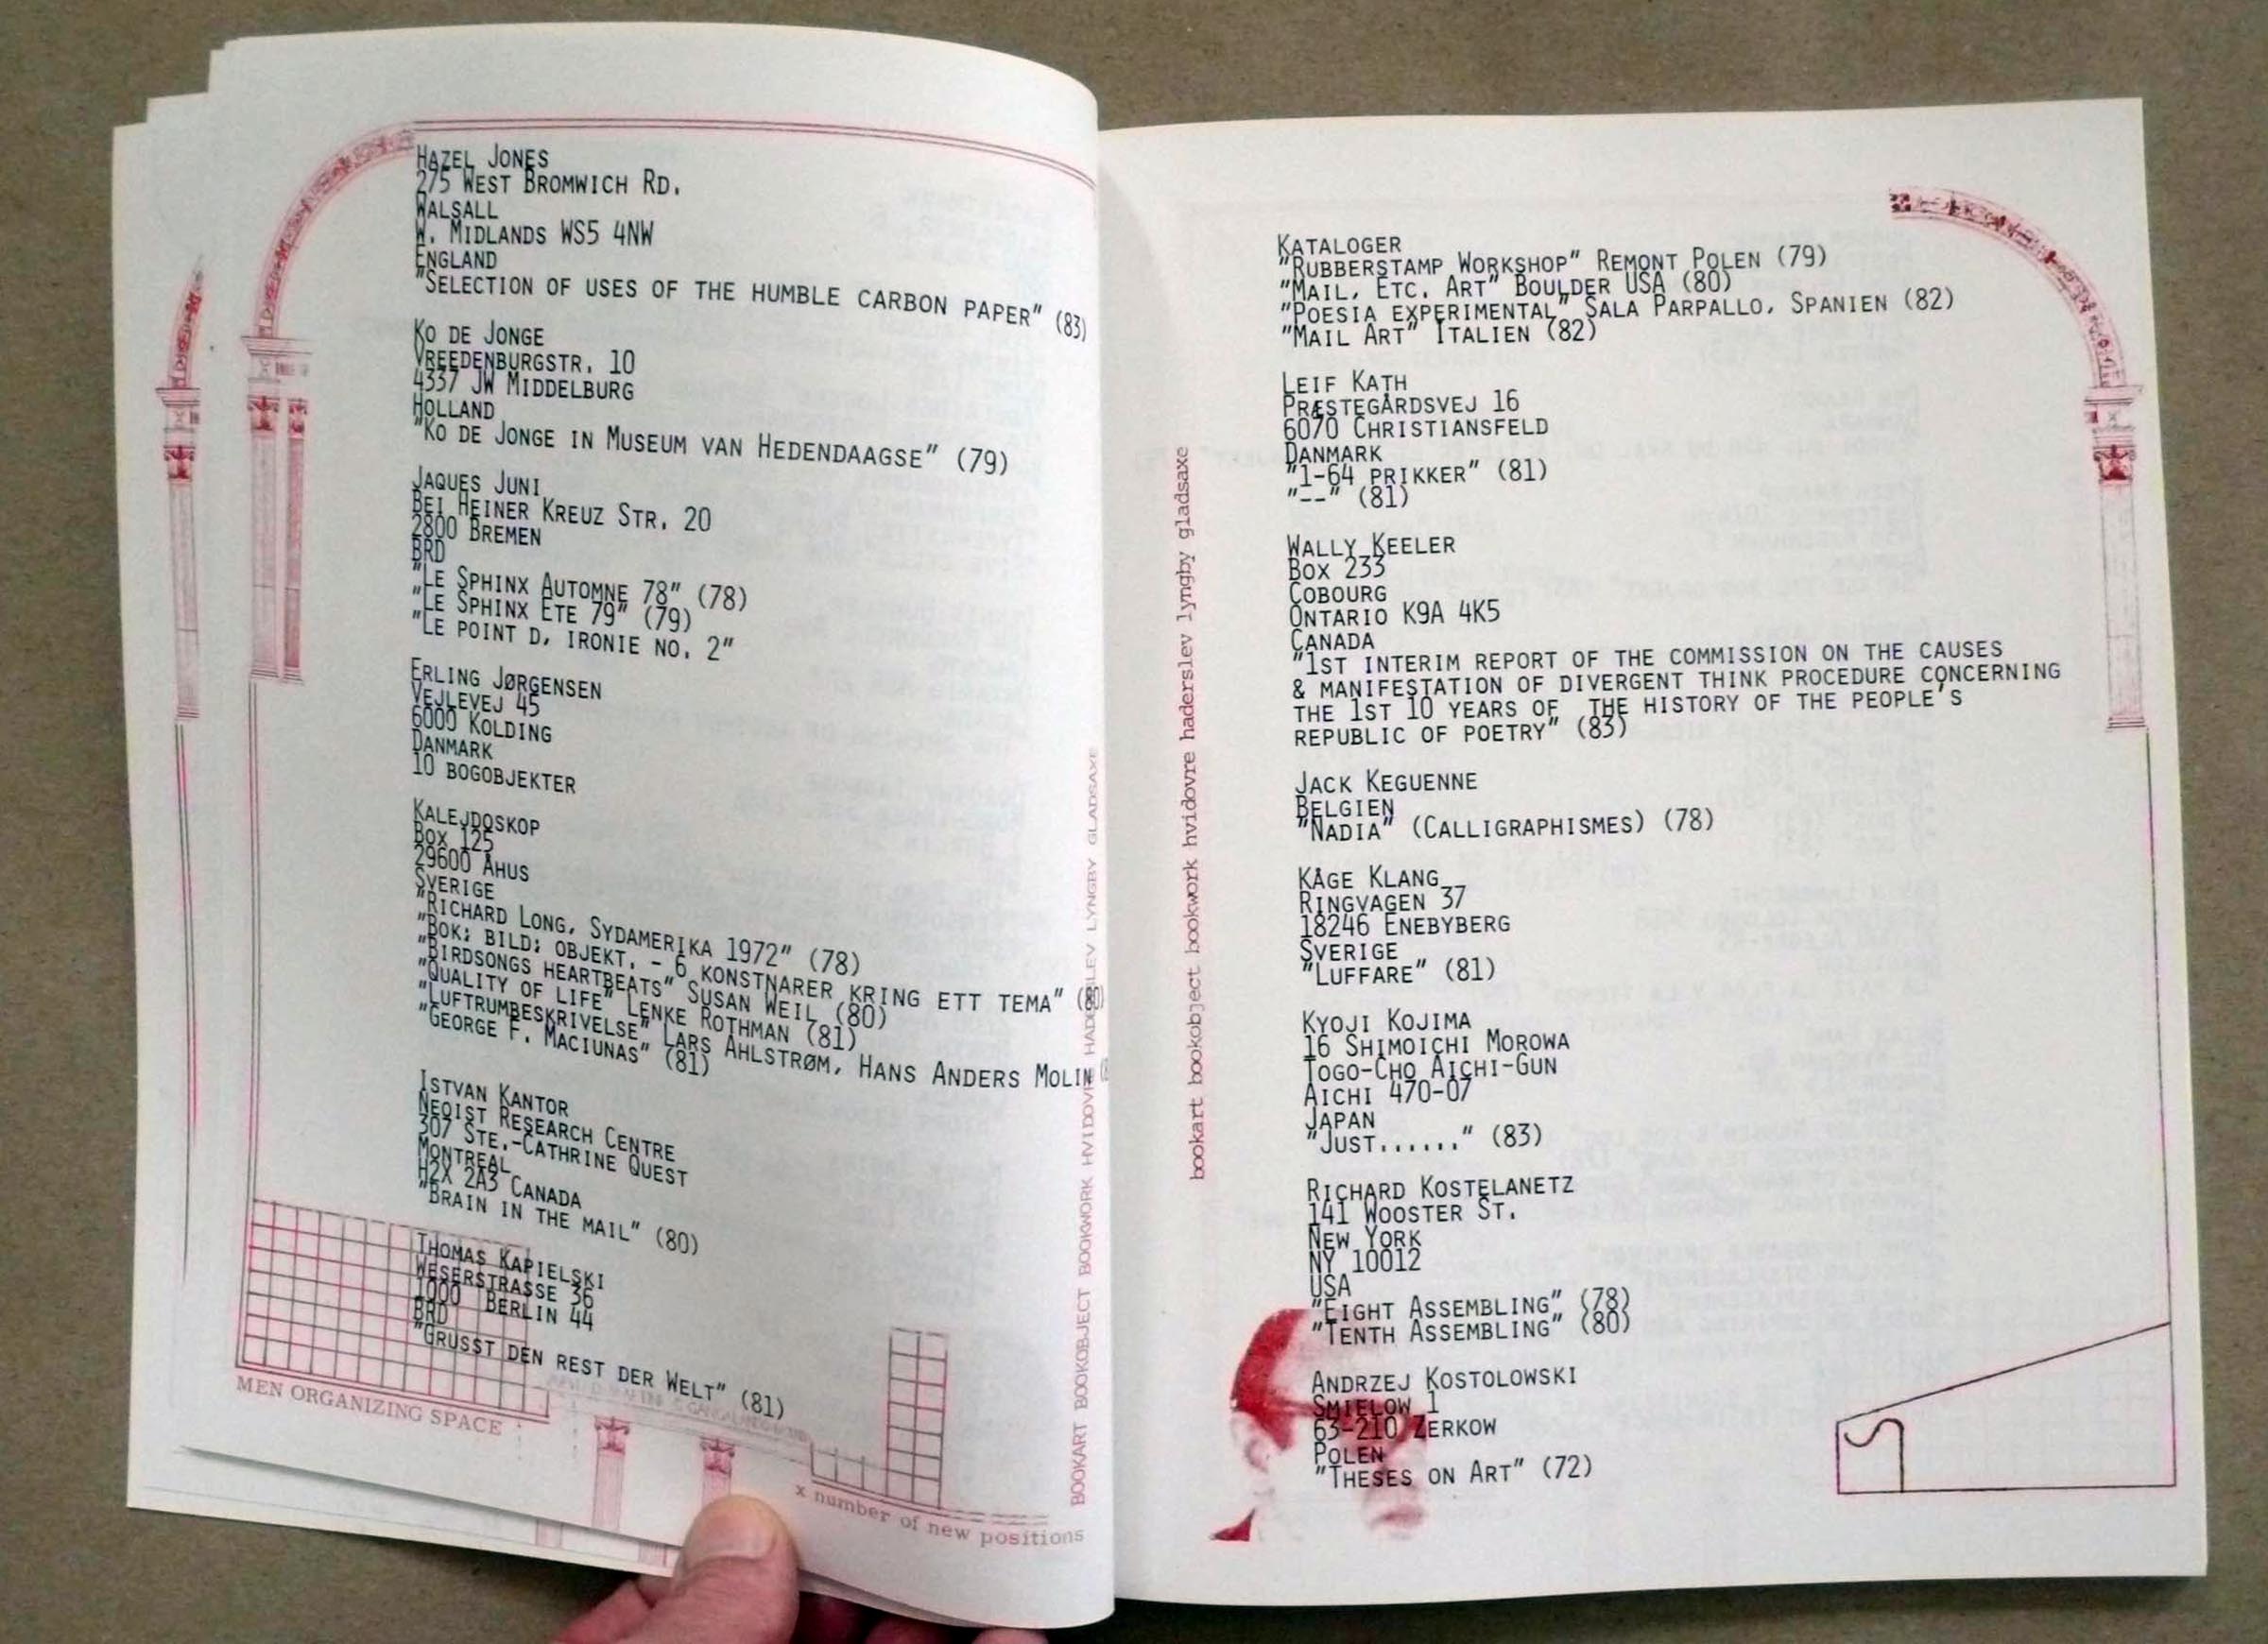 HAZEL JONES
275 WEST BROMWICH RD.
WALSALL
W. MIDLANDS WS5 4NW
ENGLAND
"SELECTION OF USES OF THE HUMBLE CARBON PAPER" (83)
KO DE JONGE
VREEDENBURGSTR. 10
4337 JW MIDDELBURG
HOLLAND
"KO DE JONGE IN MUSEUM VAN HEDENDAAGSE" (79)
JAQUES JUNI
BEI HEINER KREUZ STR. 20
2800 BREMEN
BRD
"LE SPHINX AUTOMNE 78" (78)
"LE SPHINX ETE 79" (79)
"LE POINT D, IRONIE NO. 2"
ERLING JØRGENSEN
VEJLEVEJ 45
6000 KOLDING
DANMARK
10 BOGOBJEKTER
KALEJDOSKOP
BOX 125
29600 ÅHUS
SVERIGE
"RICHARD LONG, SYDAMERIKA 1972" (78)
"BOK: BILD: OBJEKT. - 6 KONSTNARER KRING ETT TEMA" (80)
"BIRDSONGS HEARTBEATS" SUSAN WEIL (80)
"QUALITY OF LIFE" LENKE ROTHMAN (81)
"LUFTRUMBESKRIVELSE" LARS AHLSTRØM, HANS ANDERS MOLIN
"GEORGE F. MACIUNAS" (81)
ISTVAN KANTOR
NEOIST RESEARCH CENTRE
307 STE.-CATHRINE QUEST
MONTREAL
H2X 2A3 CANADA
"BRAIN IN THE MAIL" (80)
THOMAS KAPIELSKI
WESERSTRASSE 36
1000 BERLIN 44
BRD
"GRUSST DEN REST DER WELT" (81)
MEN ORGANIZING SPACE
x number of new positions
BOOKART BOOKOBJECT BOOKWORK HVIDOVRE HADERSLEV LYNGBY GLADSAXE
bookart bookobject bookwork hvidovre haderslev lyngby gladsaxe
KATALOGER
"RUBBERSTAMP WORKSHOP" REMONT POLEN (79)
"MAIL, ETC. ART" BOULDER USA (80)
"POESIA EXPERIMENTAL" SALA PARPALLO, SPANIEN (82)
"MAIL ART" ITALIEN (82)
LEIF KATH
PRÆSTEGÅRDSVEJ 16
6070 CHRISTIANSFELD
DANMARK
"1-64 PRIKKER" (81)
"--" (81)
WALLY KEELER
BOX 233
COBOURG
ONTARIO K9A 4K5
CANADA
"1ST INTERIM REPORT OF THE COMMISSION ON THE CAUSES
& MANIFESTATION OF DIVERGENT THINK PROCEDURE CONCERNING
THE 1ST 10 YEARS OF THE HISTORY OF THE PEOPLE'S
REPUBLIC OF POETRY" (83)
JACK KEGUENNE
BELGIEN
"NADIA" (CALLIGRAPHISMES) (78)
KÅGE KLANG
RINGVAGEN 37
18246 ENEBYBERG
SVERIGE
"LUFFARE" (81)
KYOJI KOJIMA
16 SHIMOICHI MOROWA
TOGO-CHO AICHI-GUN
AICHI 470-07
JAPAN
"JUST......" (83)
RICHARD KOSTELANETZ
141 WOOSTER ST.
NEW YORK
NY 10012
USA
"EIGHT ASSEMBLING" (78)
"TENTH ASSEMBLING" (80)
ANDRZEJ KOSTOLOWSKI
SMIELOW 1
63-210 ZERKOW
POLEN
"THESES ON ART" (72)